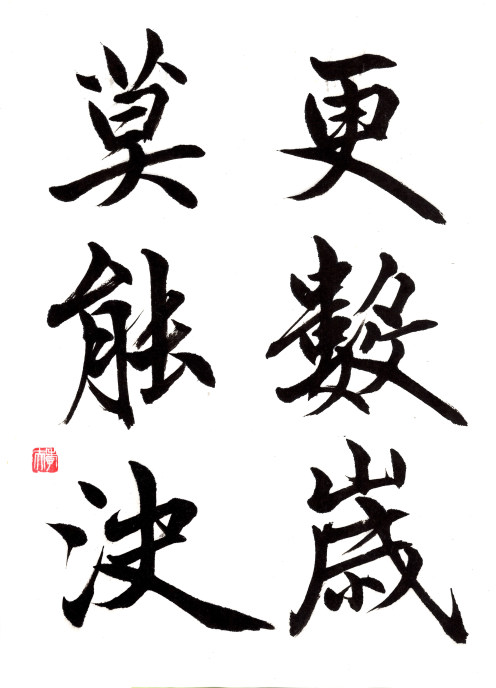 更數歲
莫能決